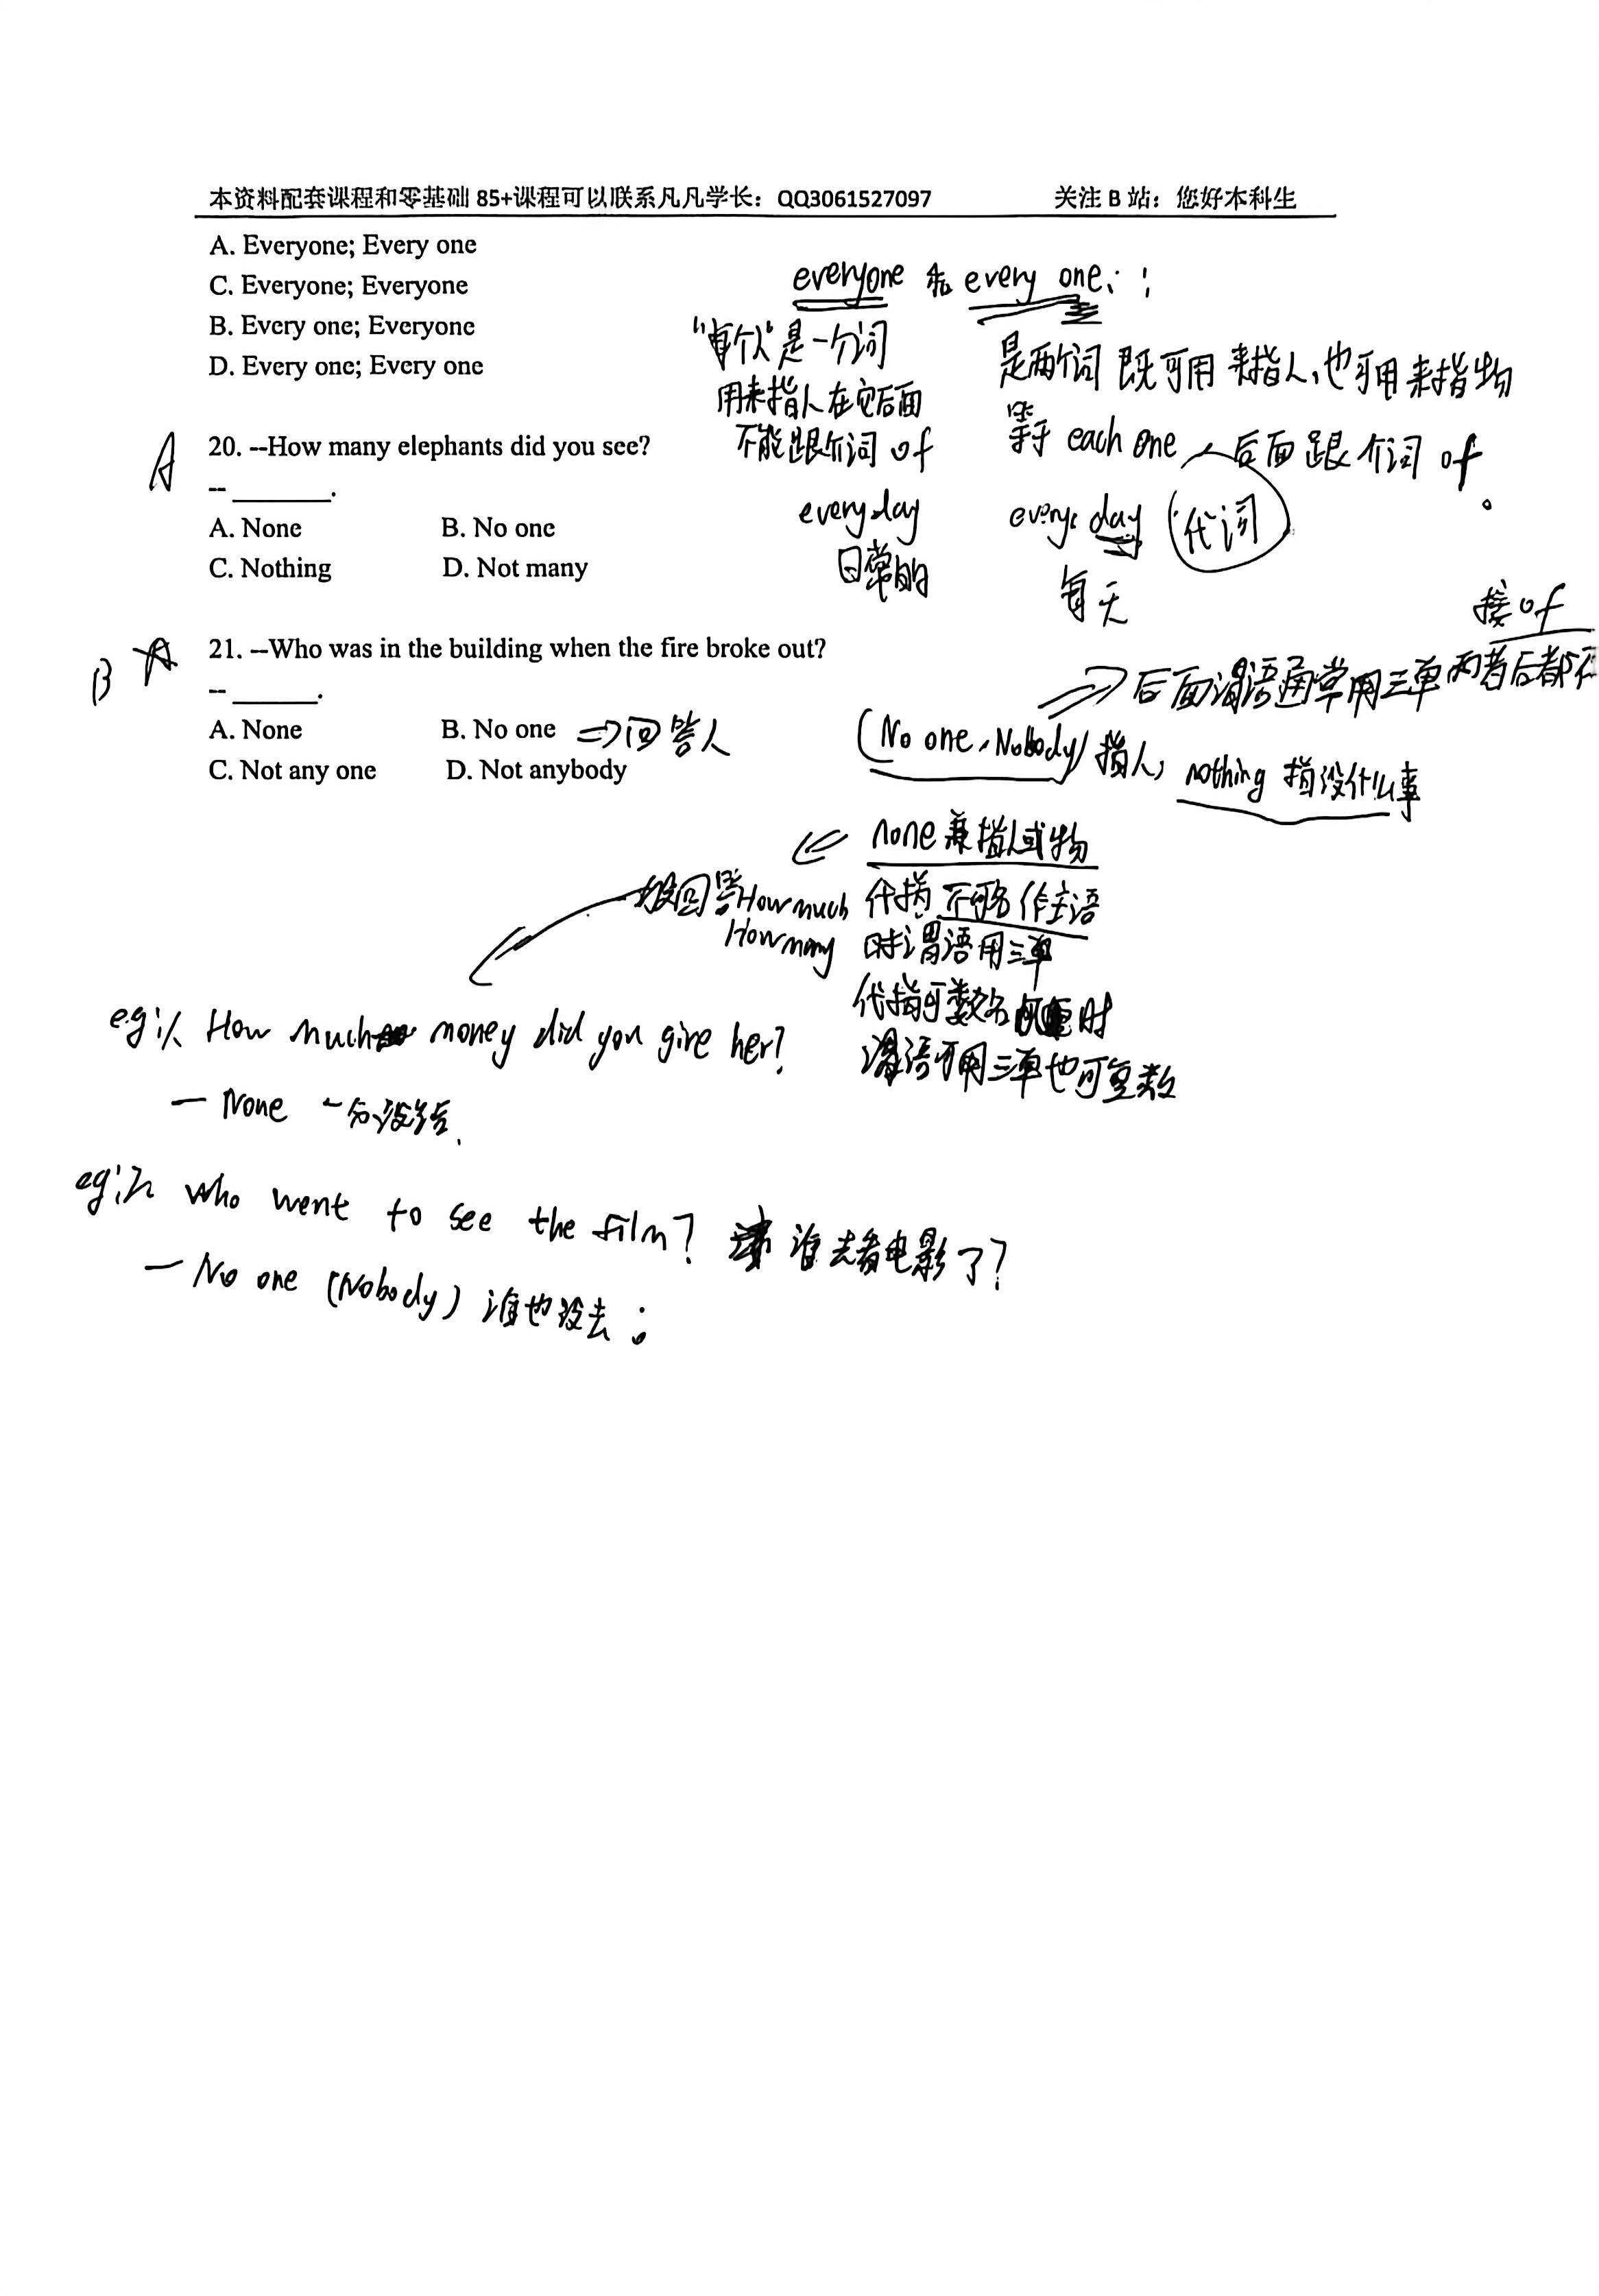 本资料配套课程和零基础 85+课程可以联系凡凡学长：QQ3061527097 关注 B 站：您好本科生
A. Everyone; Every one
C. Everyone; Everyone
B. Every one; Everyone
D. Every one; Every one
everyone 和 every one：
"每个人"是一个词
用来指人在它后面
不能跟介词 of
是两个词 既可用来指人，也可用来指物
等于 each one，后面跟介词 of。
everyday
日常的
every day （代词
每天
A
20. --How many elephants did you see?
-- ________.
A. None B. No one
C. Nothing D. Not many
B A
21. --Who was in the building when the fire broke out?
-- _______.
A. None B. No one ⇒回答人
C. Not any one D. Not anybody
接 of
⇒ 后面谓语通常用三单 两者后都不
(No one, Nobody) 指人， nothing 指没什么事
none 兼指人或物
代指 不可名 作主语
时谓语用三单
代指可数名 时
谓语可用三单也可复数
回答How much
How many
eg:1、How much money did you give her?
— None 一分没给.
eg:2、who went to see the film? 谁去看电影了?
— No one (Nobody) 谁也没去；